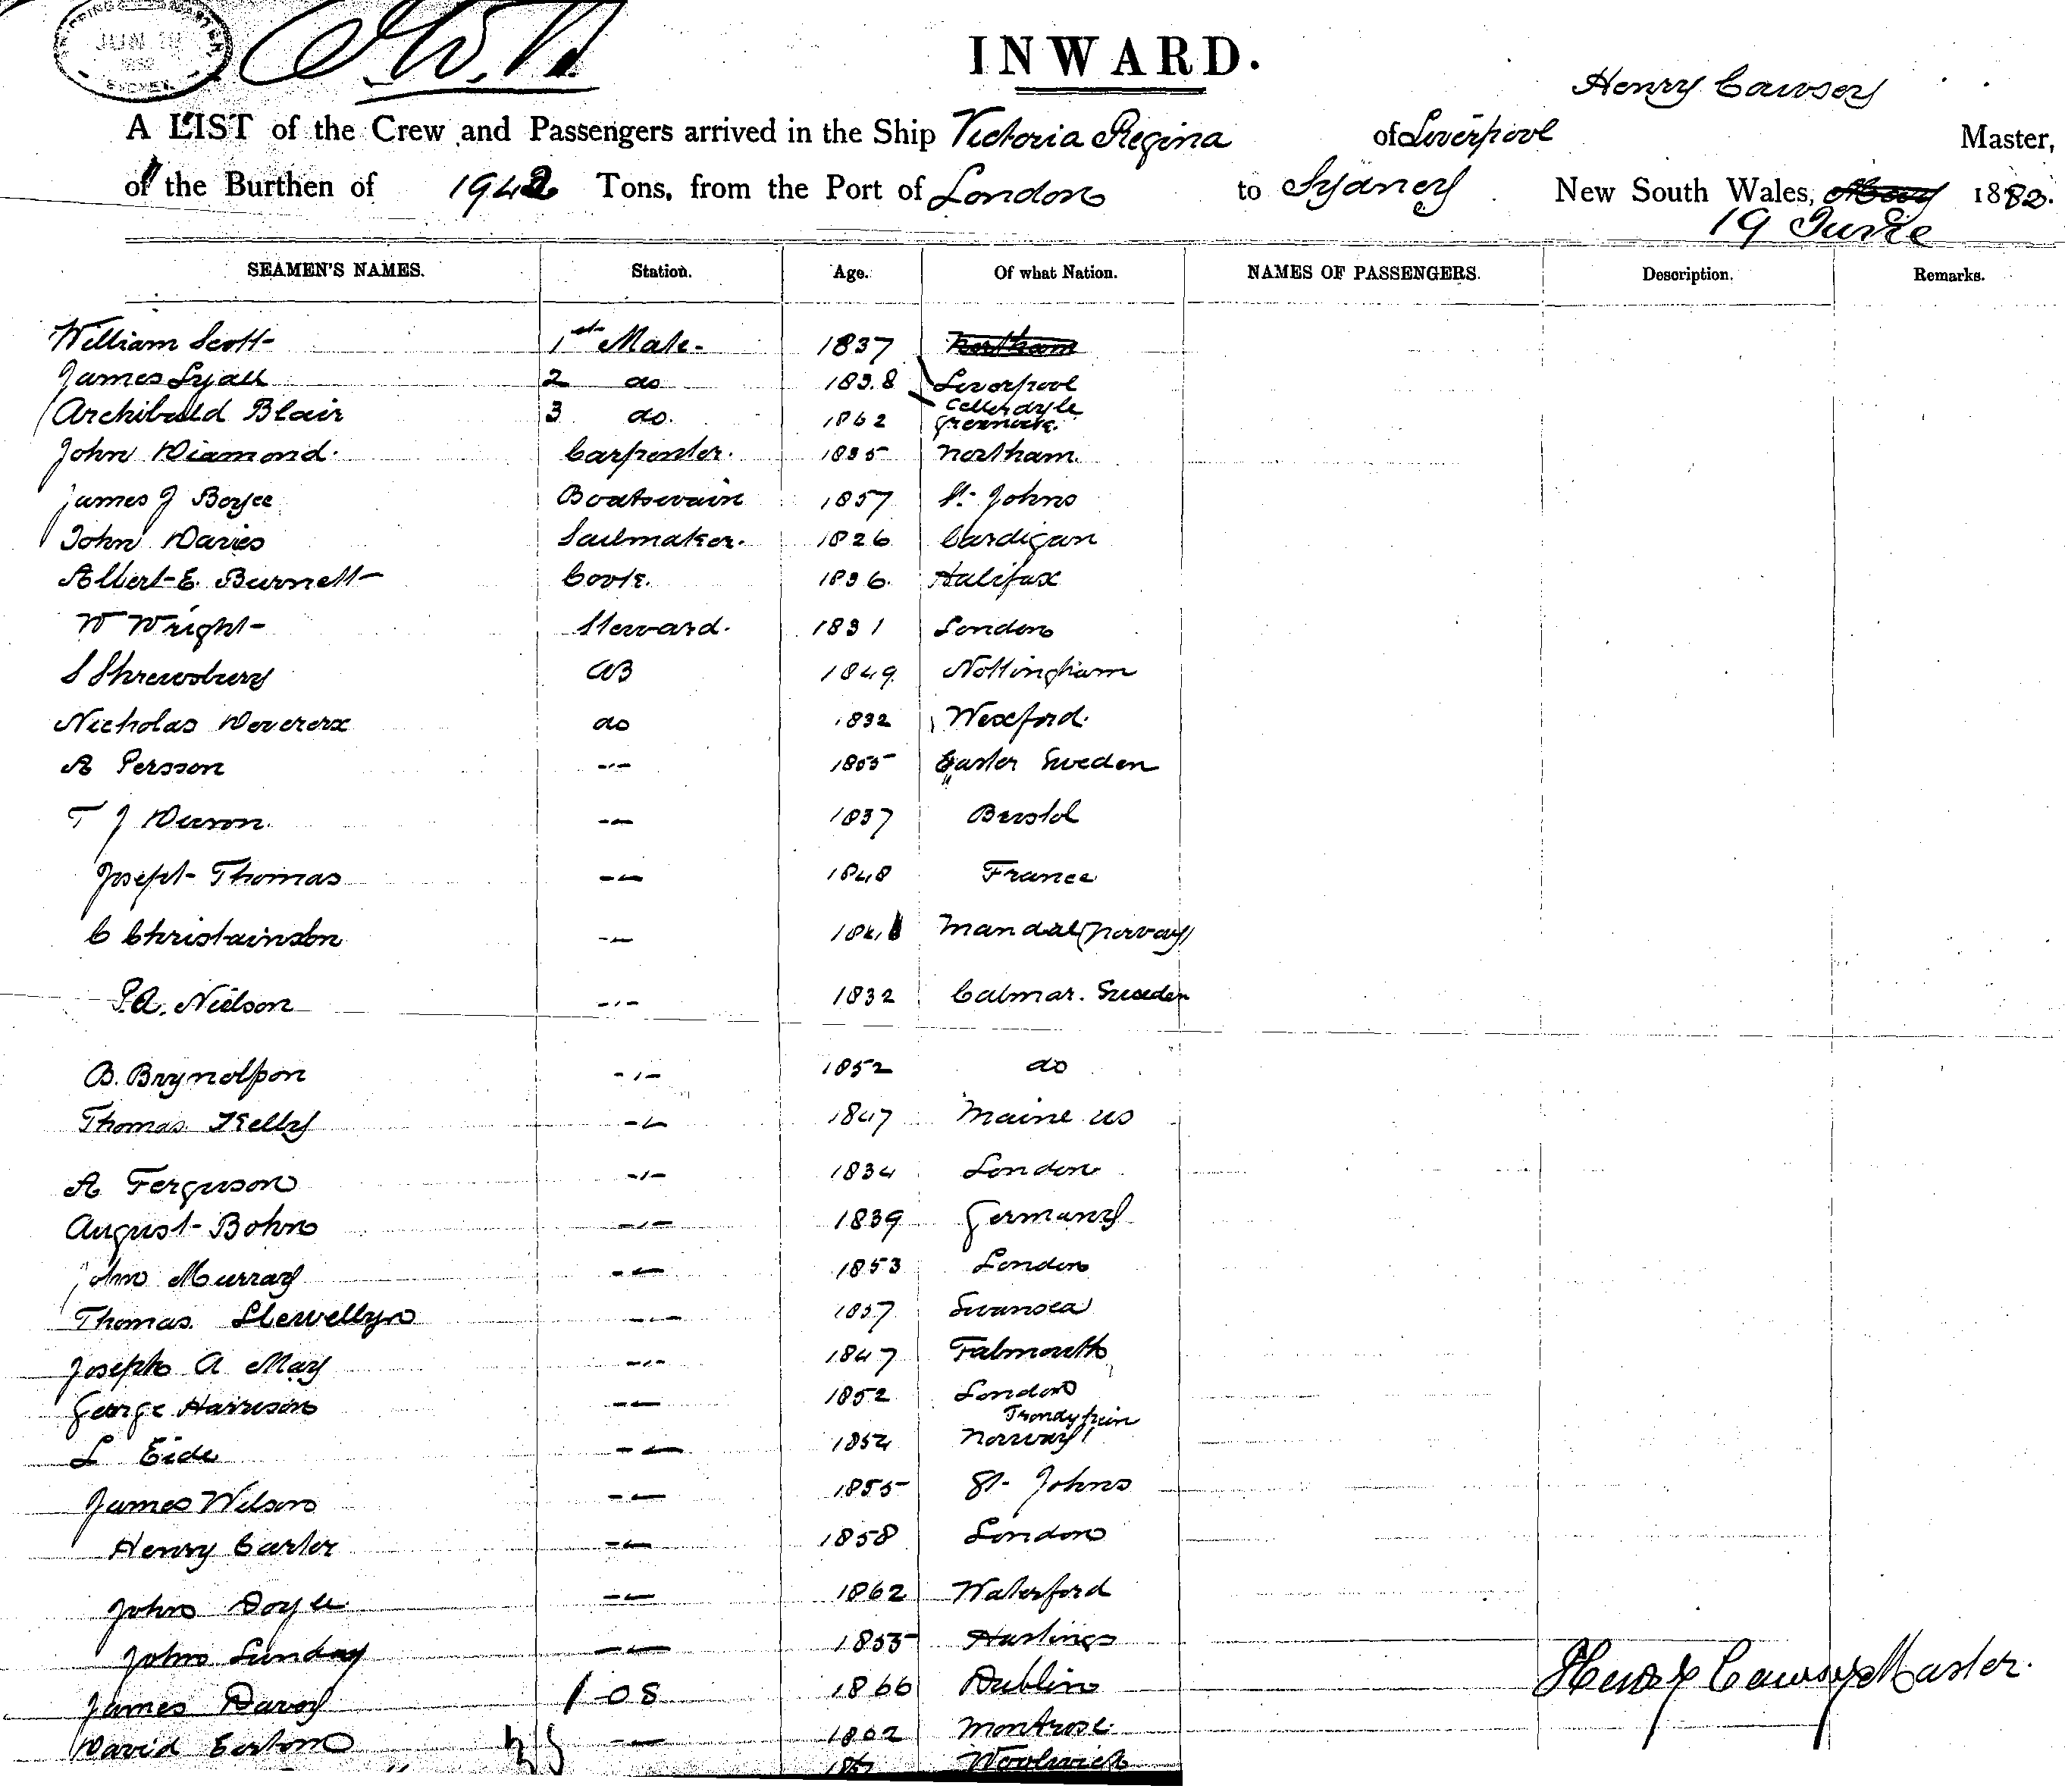 JUN 19
SYDNEY
INWARD.
Henry Cawsey
A LIST of the Crew and Passengers arrived in the Ship Victoria Regina of Liverpool Master,
of the Burthen of 1942 Tons, from the Port of London to Sydney New South Wales, 1882.
19 June
SEAMEN'S NAMES. Station. Age. Of what Nation. NAMES OF PASSENGERS. Description. Remarks.
William Scott 1st Mate 1837 Northam
James Lyall 2 do 1838 Liverpool
Cellerdyke
Archibald Blair 3 do. 1862 Greenock
John Diamond. Carpenter. 1835 Northam.
James J Boyce Boatswain 1857 St. Johns
John Davies Sailmaker. 1826 Cardigan
Albert E. Burnett Cook. 1836. Halifax
W Wright Steward. 1831 London
S Shrewsbury AB 1849 Nottingham
Nicholas Devererx do 1832 Wexford.
A Persson -"- 1855 Sweden
T J -"- 1837 Bristol
Joseph Thomas -"- 1848 France
C Christainson -"- Mandal (Norway)
P.A. Nielson -"- 1832 Calmar. Sweden
B. Brynolfson -"- 1852 do
Thomas Kelly -"- 1847 Maine US
A Ferguson -"- 1834 London
August Bohn -"- 1839 Germany
John Murray -"- 1853 London
Thomas Llewellyn -"- 1857 Swansea
Joseph A May -"- 1847 Falmouth
George Harrison -"- 1852 London
L Eide -"- 1854 Norway
James Wilson -"- 1855 St. Johns
Henry Carter -"- 1858 London
John Doyle -"- 1862 Waterford
John Sunday -"- 1855 Hastings
James Davy OS 1866 Dublin
David Eastom -"- 1862 Montrose
Woolwich
Henry Cawsey Master.